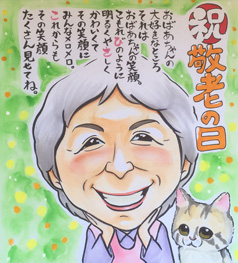 祝
敬老の日
おばあちゃんの
大好きなところ
それは
おばあちゃんの笑顔。
こもれびのように
明るくやさしく
かわいくて
その笑顔に
みんなメロメロ。
これからも
その笑顔
たくさん見せてね。